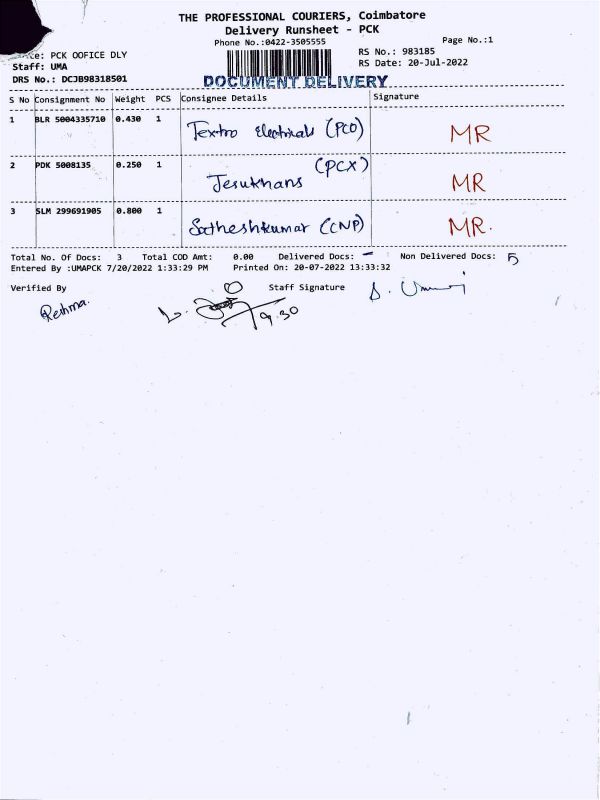 THE PROFESSIONAL COURIERS, Coimbatore
Delivery Runsheet - PCK
Phone No.:0422-3505555 Page No.:1
PCK OOFICE DLY RS No.: 983185
Staff: UMA RS Date: 20-Jul-2022
DRS No.: DCJB98318501 DOCUMENT DELIVERY
S No Consignment No Weight PCS Consignee Details Signature
1 BLR 5004335710 0.430 1 Textro Electricals (PCO) MR
2 PDK 5008135 0.250 1 Jesukhans (PCX) MR
3 SLM 299691905 0.800 1 Satheshkumar (CNP) MR.
Total No. Of Docs: 3 Total COD Amt: 0.00 Delivered Docs: - Non Delivered Docs:
Entered By :UMAPCK 7/20/2022 1:33:29 PM Printed On: 20-07-2022 13:33:32
Verified By Staff Signature
Reshma. 9.30